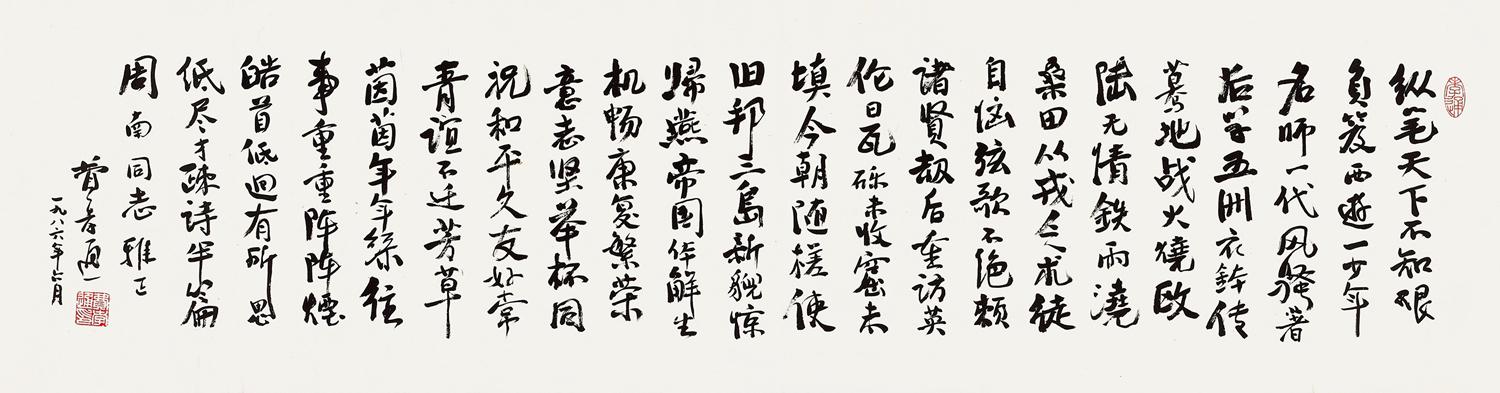 纵笔天下不知艰
负笈西遊一少年
名师一代风骚著
后学五洲衣钵传
蓦地战火燒欧
陆无情鉄雨澆
桑田从戎乏术徒
自恼弦歌不绝赖
諸賢劫后重訪英
伦日瓦砾未收窟未
填今朝随槎使
旧邦三岛新貌惊
歸燕帝国体解生
机畅康复繁荣
意志坚举杯同
祝和平久友好常
青誼不迁芳草
茵茵年年綠往
事重重阵阵煙
皓首低迴有所思
纸尽才疎詩半篇
周南同志雅正
费孝通
一九八六年六月